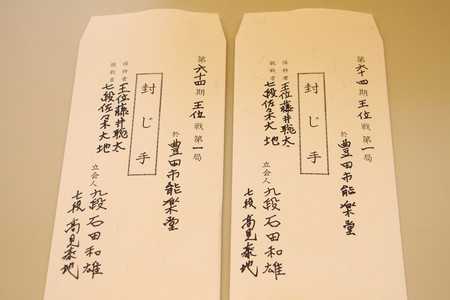 第六十四期王位戦第一局
於豊田市能楽堂
封じ手
保持者王位藤井聡太
挑戦者七段佐々木大地
立会人九段石田和雄
七段高見泰地
第六十四期王位戦第一局
於豊田市能楽堂
封じ手
保持者王位藤井聡太
挑戦者七段佐々木大地
立会人九段石田和雄
七段高見泰地